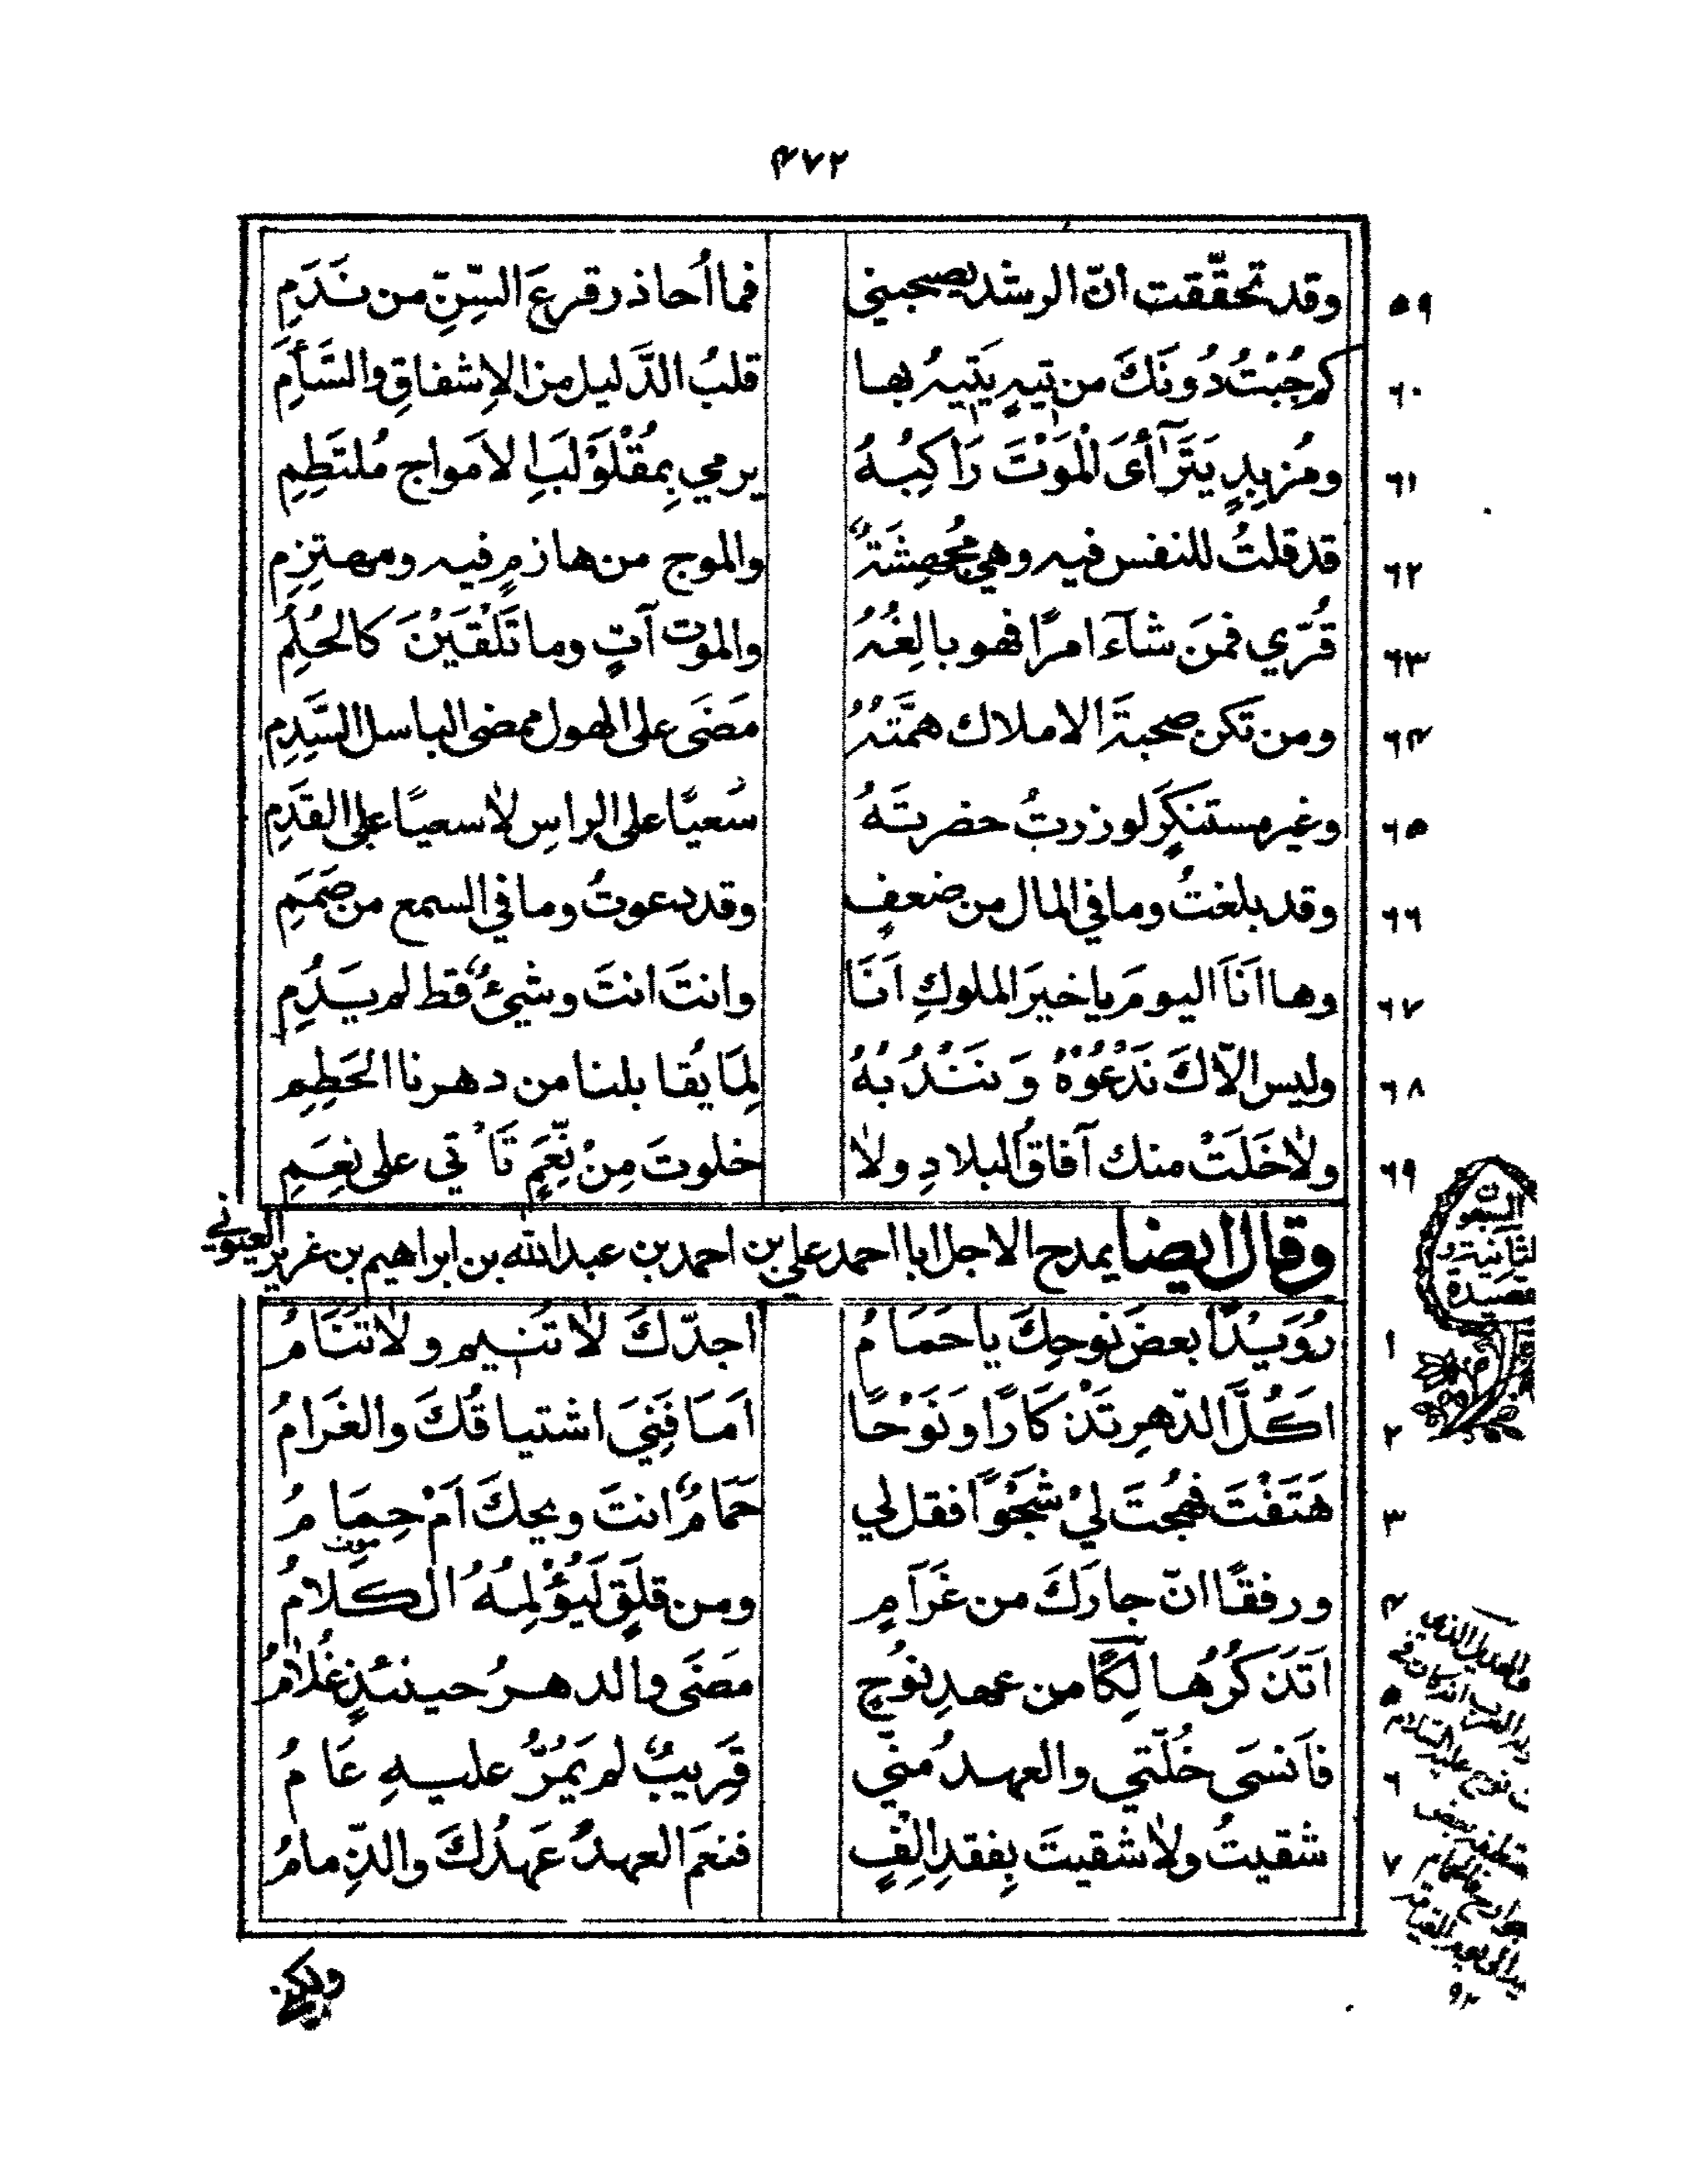 ٤٧٢
٥٩ وقد تحقّقت انّ الرشد يصحبني فما اُحاذر قرعَ السِّنِّ من نَدَمِ
٦٠ كم جُبْتُ دُونَكَ من تيهٍ يَتيهُ بها قلبُ الدَّليل من الاِشفاقِ والسَّأَمِ
٦١ ومُزبِدٍ يَتَرَآأىَ الْمَوْتَ رَاكِبُهُ يرمي بِمُقْلَوْلَبِ الاَمواج مُلتَطِمِ
٦٢ قد قلتُ للنفس فيه وهي مُجْهِشَةٌ والموج من هازمٍ فيه ومهتزِمِ
٦٣ قُرّي فمَن شآءَ امرًا فهو بالِغُهُ والموت آتٍ وما تَلْقَيْنَ كالحُلُمِ
٦٤ ومن تَكن صحبةَ الاملاك همَّتَهُ مَضَى على الهول ممضى الباسل السَّدِمِ
٦٥ وغير مستنكَرٍ لو زرتُ حضرتَهُ سَعيًا على الراسِ لا سعيًا على القَدَمِ
٦٦ وقد بلغتُ وما في المال من ضعفٍ وقد دعوتُ وما في السمع من صَمَمِ
٦٧ وها اَنَا اليومَ يا خيرَ الملوكِ اَنَا وانتَ انتَ وشيءٌ قط لم يَدُمِ
٦٨ وليس الّاكَ نَدْعُوْهُ وَ نَنْدُبُهُ لِمَا يُقابلنا من دهرنا الحَطِمِ
٦٩ ولا خَلَتْ منك آفاقُ البلادِ ولا خلوتَ مِنْ نِّعَمٍ تَأْتي على نِعَمِ
وقال ايضا يمدح الاجل ابا احمد علي بن احمد بن عبد الله بن ابراهيم بن غرير العيوني
١ رُوَيْدًا بعضَ نوحِكَ يا حَمَامُ اجدّكَ لا تُنيم ولا تَنَامُ
٢ اكُلَّ الدّهرِ تَذْكَارًا ونَوْحًا اَمَا فَنِيَ اشتياقُكَ والغَرَامُ
٣ هَتَفْتَ فهِجتَ ليْ شَجْوًا فقل لي حَمَامٌ انتَ ويحكَ اَمْ حِمَامُ
موت
٤ ورفقًا انّ جارَكَ من غَرَامٍ ومن قلَقٍ لَيُؤْلِمُهُ الكلامُ
٥ اَتَذكُرُها لِكًا من عهدِ نوُحٍ مضَى والدهرُ حينئذٍ غُلامُ
٦ فاَنسَى خُلّتي والعهدُ منّي قَرِيبٌ لم يَمُرَّ عليهِ عَامُ
٧ شقيتُ ولا شقيتَ بِفقدِ اِلْفٍ فنعمَ العهدُ عَهدُكَ والذِّمامُ